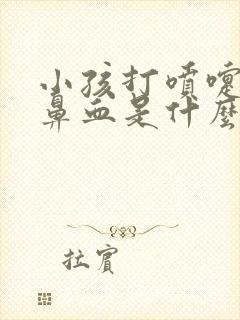 小孩打噴嚏
鼻血是什麼
拉賓